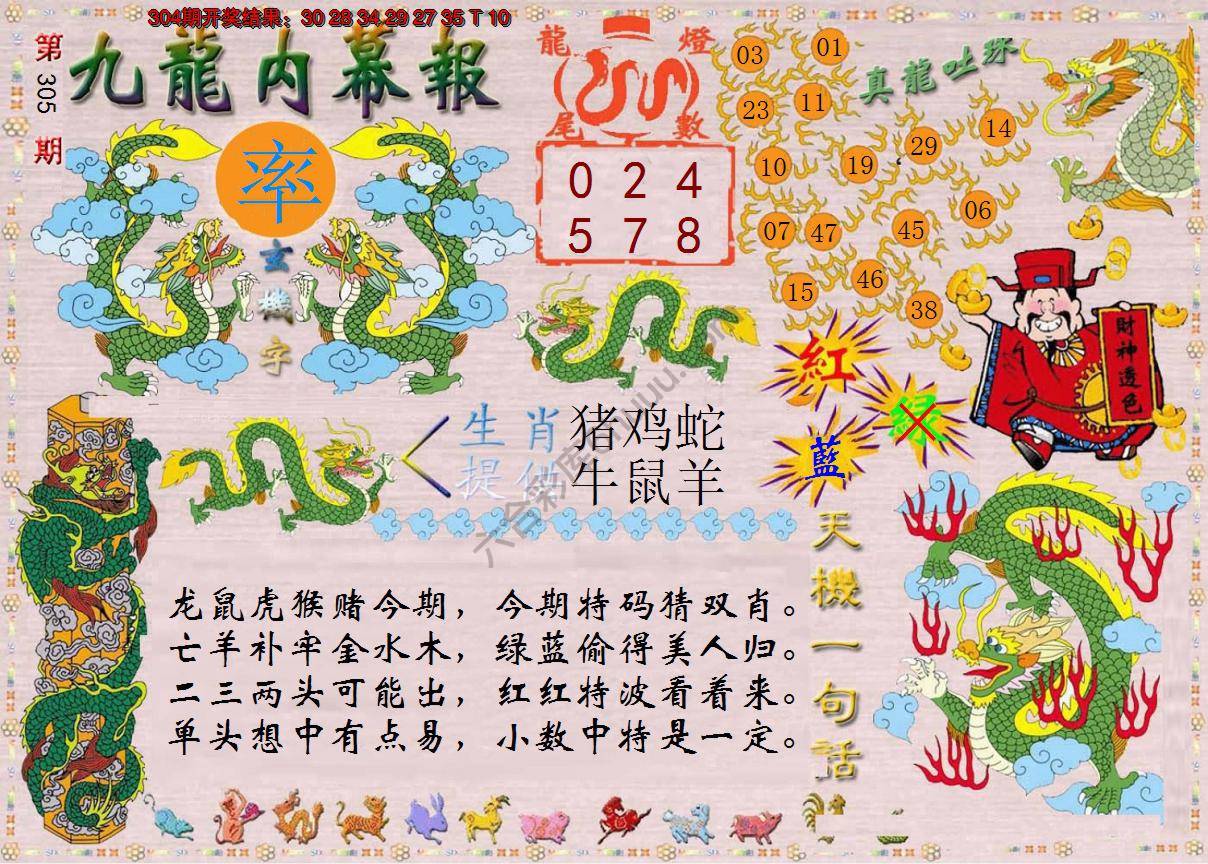 304期开奖结果：30 28 34 29 27 35 T 10
第305期
九龍内幕報
率
玄機字
龍燈
尾數
0 2 4
5 7 8
真龍吐珠
03 01
23 11
10 19 29 14
07 47 45 06
15 46 38
財神透色
紅
绿
藍
生肖 猪鸡蛇
提供 牛鼠羊
天機一句話
龙鼠虎猴赌今期，今期特码猜双肖。
亡羊补牢金水木，绿蓝偷得美人归。
二三两头可能出，红红特波看着来。
单头想中有点易，小数中特是一定。